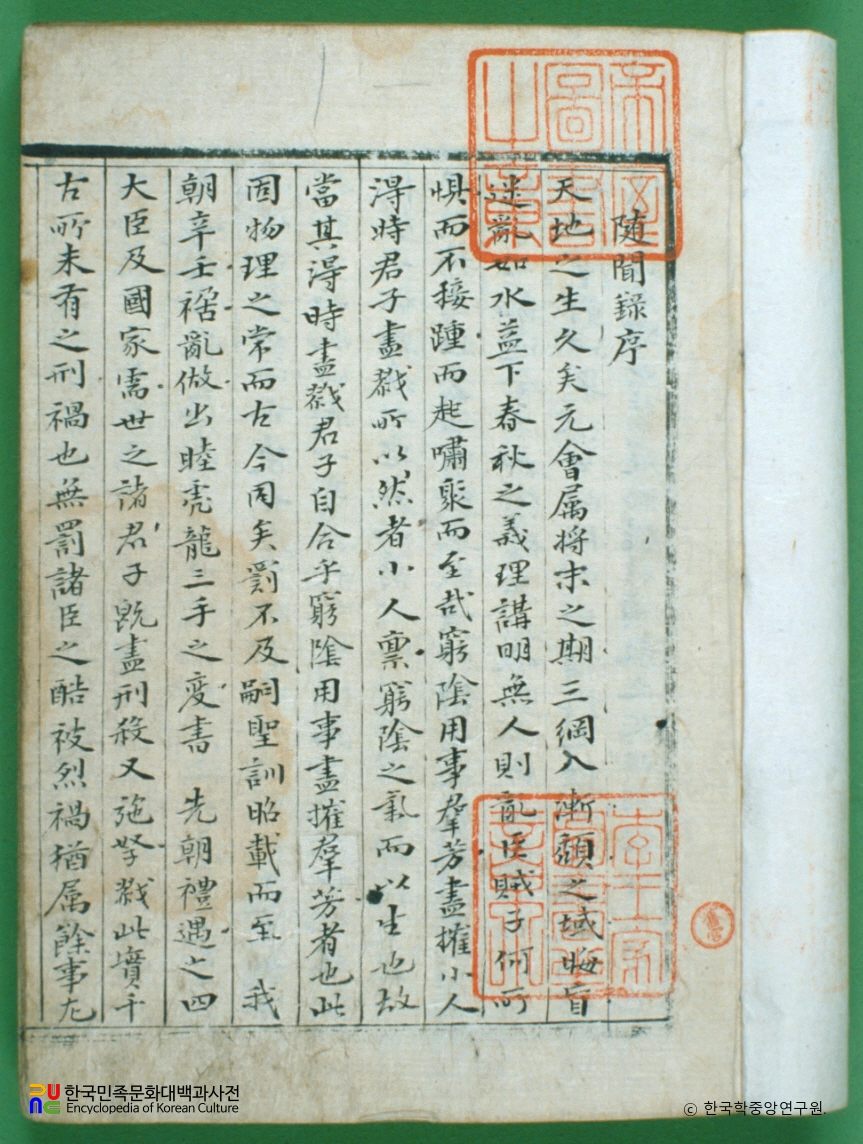 隨聞錄序
天地之生久矣元會属將末之期三綱入漸頽之域晦盲
迷亂如水益下春秋之義理講明無人則亂臣賊子何所
惧而不接踵而起嘯聚而至哉窮陰用事羣芳盡摧小人
得時君子盡戮所以然者小人禀窮陰之氣而以生也故
當其得時盡戮君子自合乎窮陰用事盡摧羣芳者也此
固物理之常而古今同矣罰不及嗣聖訓昭載而至 我
朝辛壬禍亂做出睦虎龍三手之变書 先朝禮遇之四
大臣及國家需世之諸君子旣盡刑殺又施孥戮此實千
古所未有之刑禍也無罰諸臣之酷被烈禍猶属餘事尢
한국민족문화대백과사전
Encyclopedia of Korean Culture
© 한국학중앙연구원